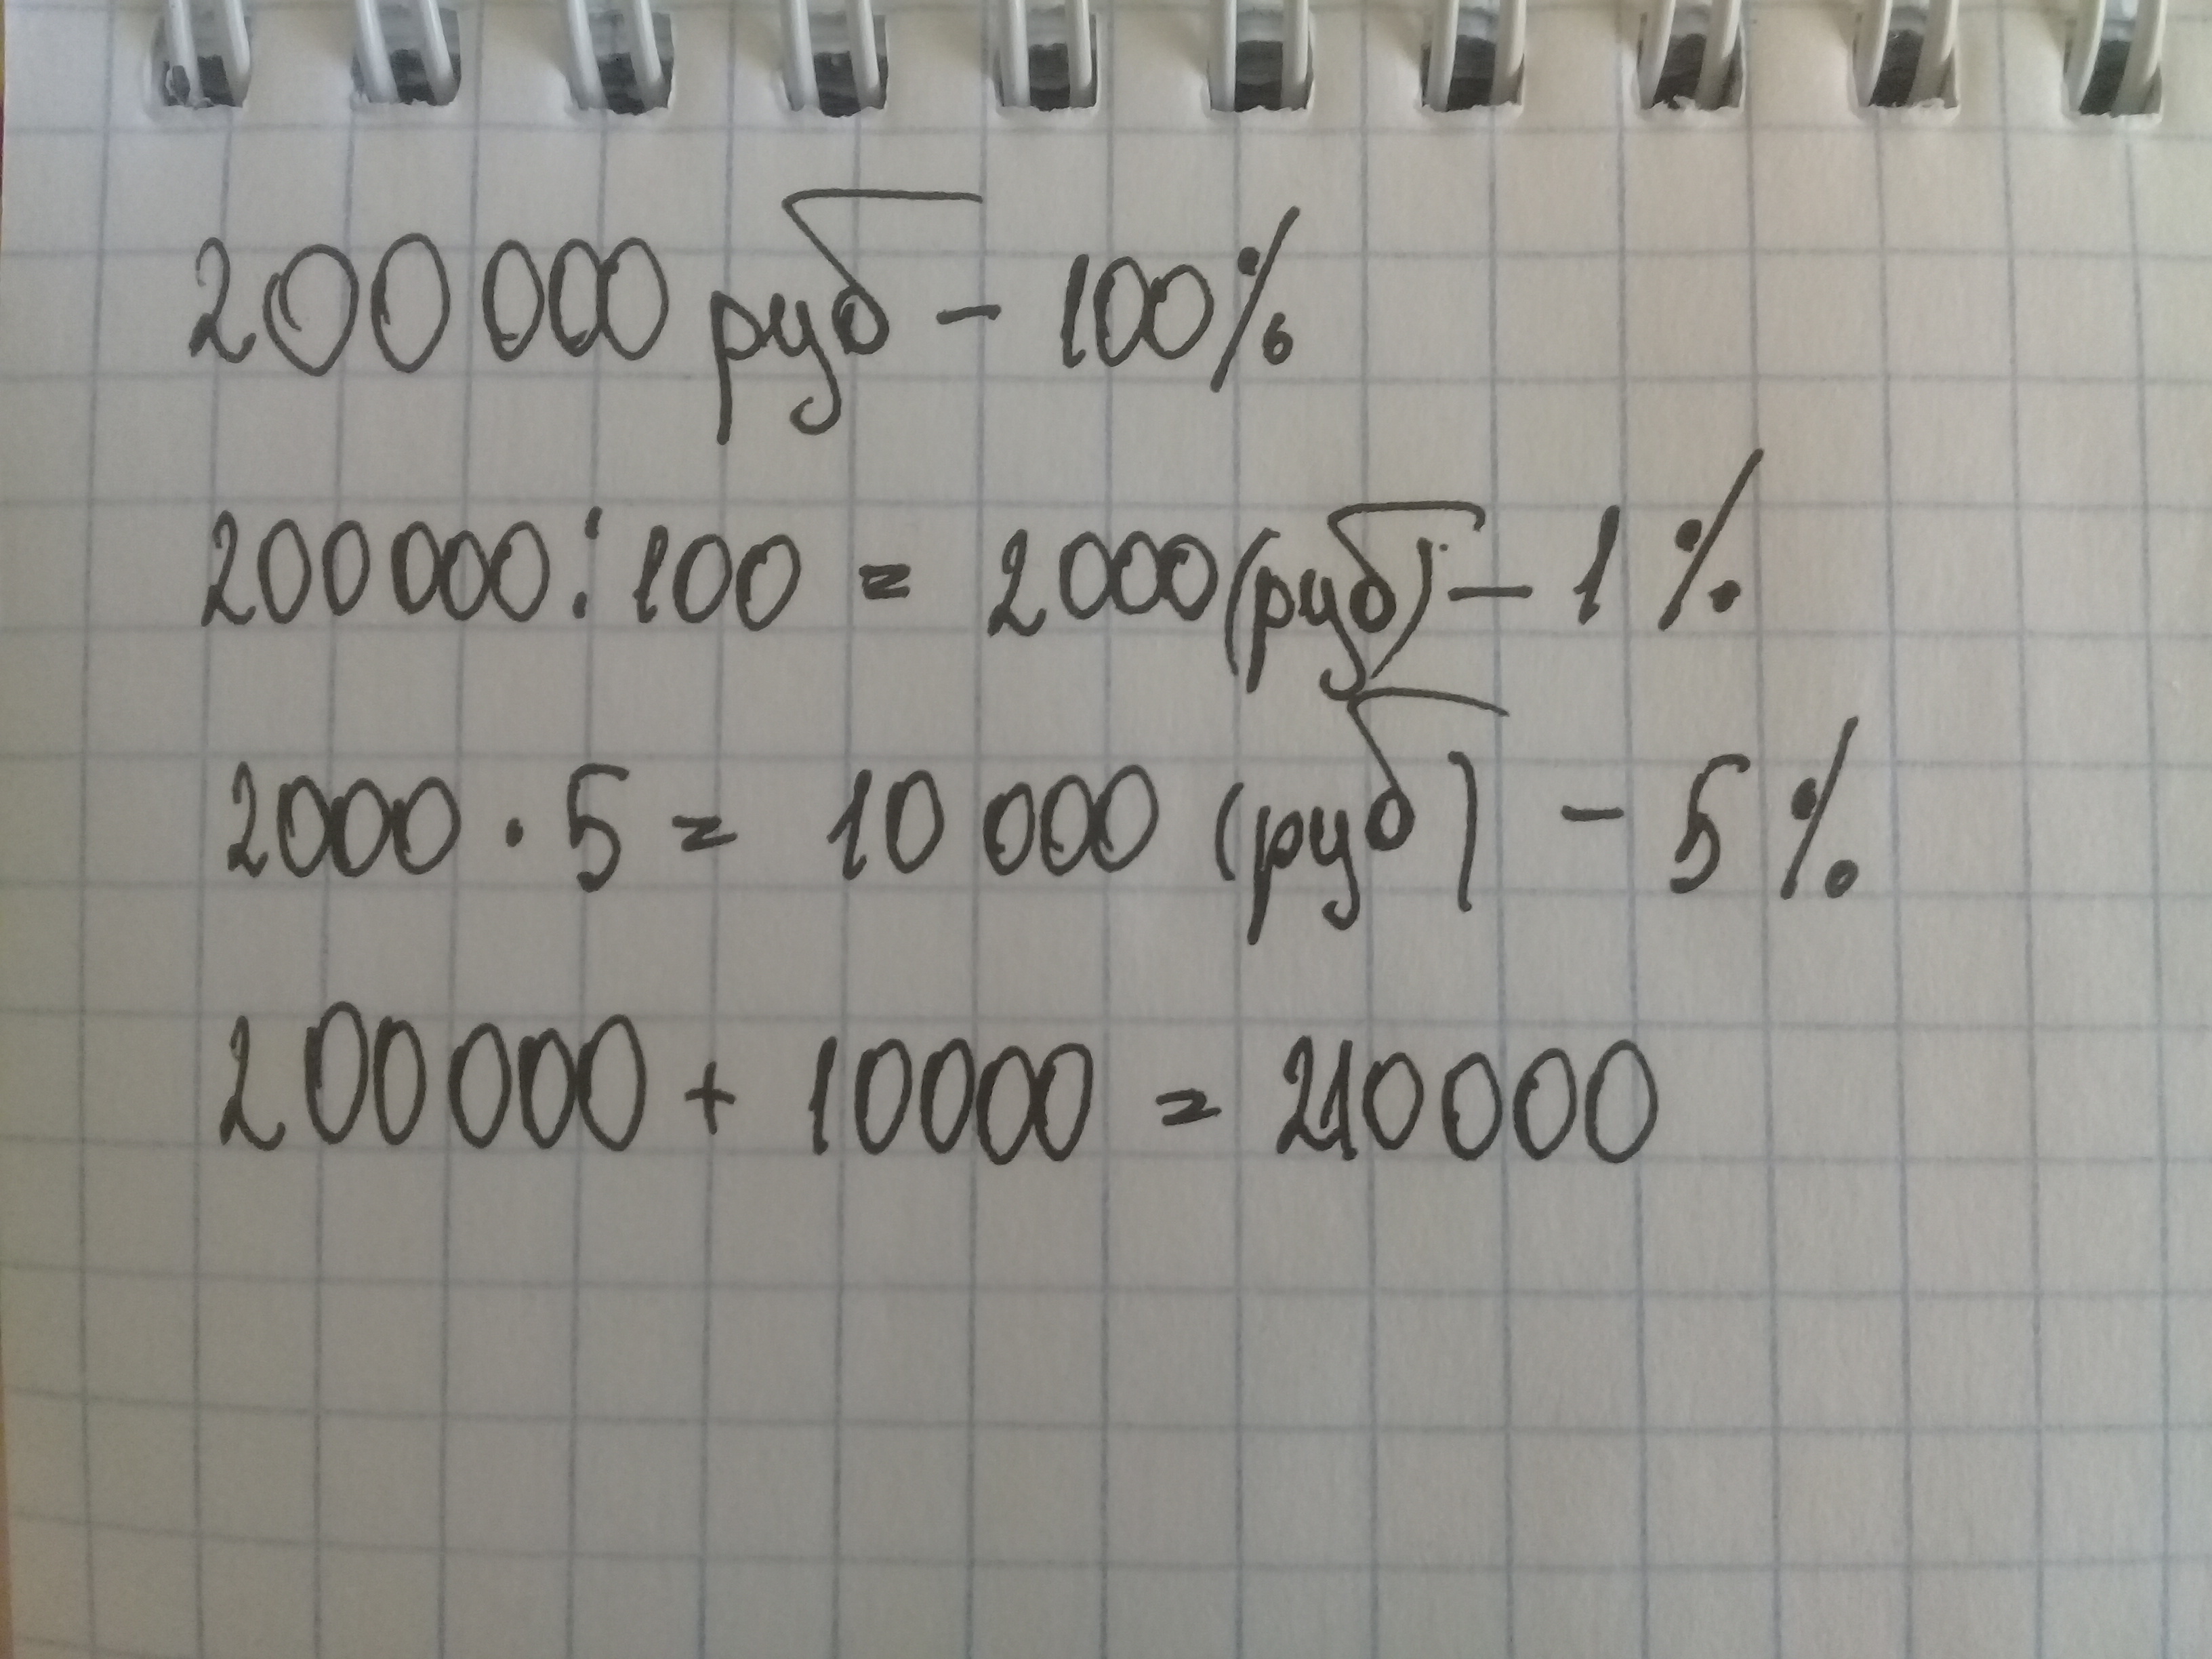 200 000 руб - 100%
200 000 : 100 = 2 000 (руб) - 1 %
2000 · 5 = 10 000 (руб) - 5 %
200000 + 10000 = 210000